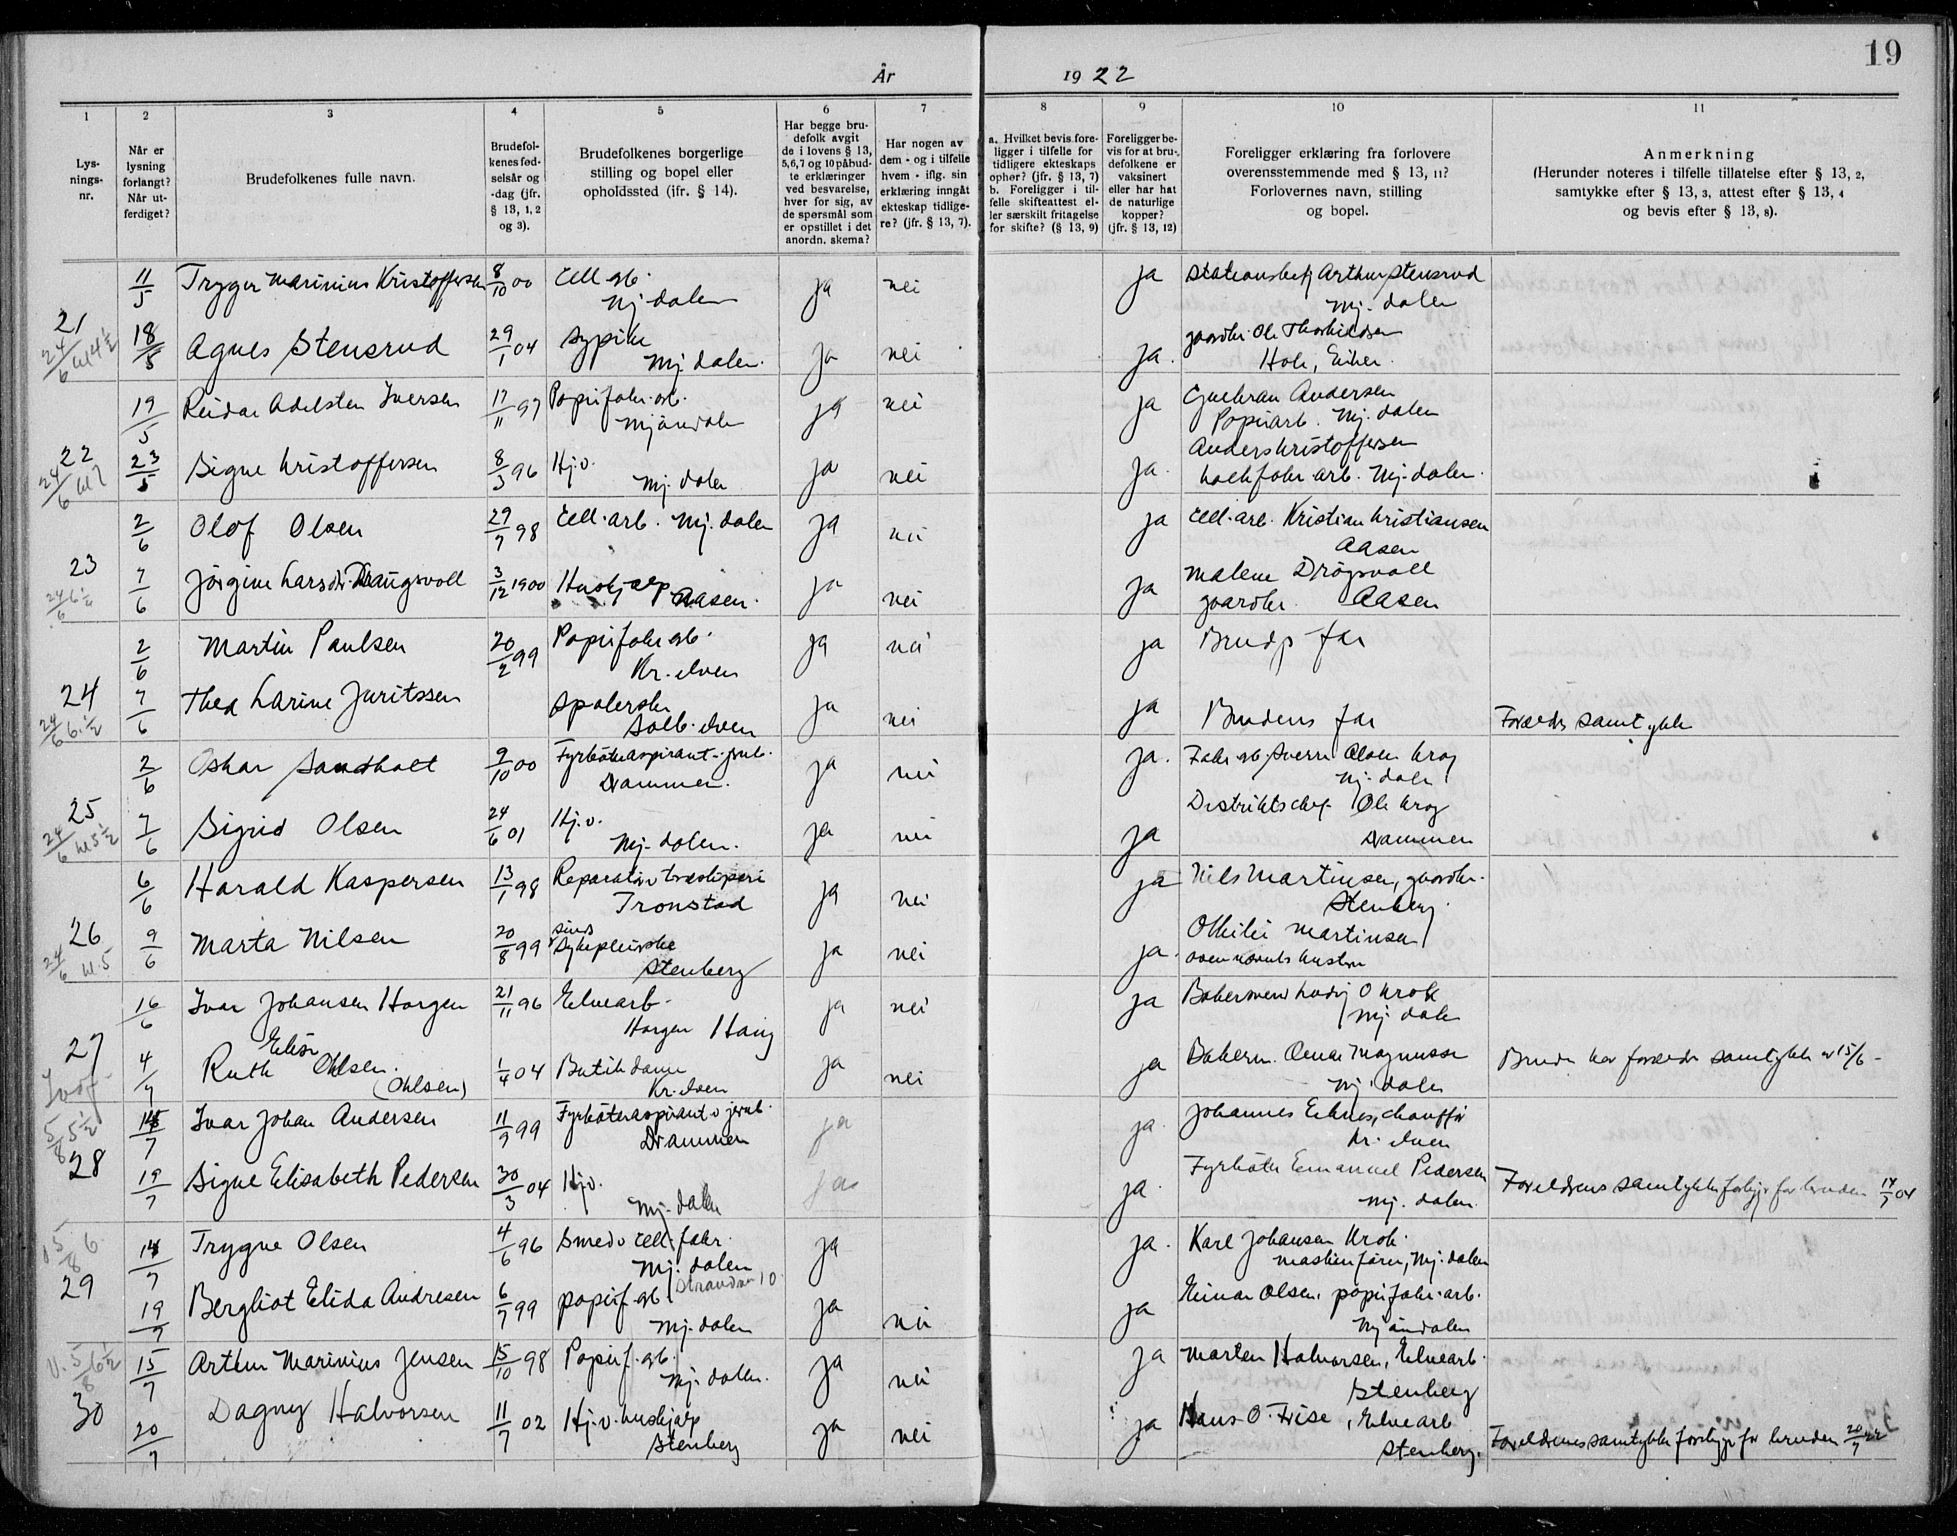 19
År 1922
1
Lys-
nings-
nr.
2
Når er
lysning
forlangt?
Når ut-
ferdiget?
3
Brudefolkenes fulle navn.
4
Brudefol-
kenes fød-
selsår og
-dag (jfr.
§ 13, 1, 2
og 3).
5
Brudefolkenes borgerlige
stilling og bopel eller
opholdssted (jfr. § 14).
6
Har begge bru-
defolk avgit
de i lovens § 13,
5,6,7 og 10 påbud-
te erklæringer
ved besvarelse,
hver for sig, av
de spørsmål som
er opstillet i det
anordn. skema?
7
Har nogen av
dem - og i tilfelle
hvem - iflg. sin
erklæring inngått
ekteskap tidlige-
re? (jfr. § 13, 7).
8
a. Hvilket bevis fore-
ligger i tilfelle for
tidligere ekteskaps
ophør? (jfr. § 13, 7)
b. Foreligger i til-
felle skifteattest el-
ler særskilt fritagelse
for skifte? (§ 13, 9)
9
Foreligger be-
vis for at bru-
defolkene er
vaksinert
eller har hat
de naturlige
kopper?
(jfr. § 13, 12)
10
Foreligger erklæring fra forlovere
overensstemmende med § 13, 11?
Forlovernes navn, stilling
og bopel.
11
Anmerkning
(Herunder noteres i tilfelle tillatelse efter § 13, 2,
samtykke efter § 13, 3, attest efter § 13, 4
og bevis efter § 13, 8).
11/5 Trygve Marinius Kristoffersen 8/10 00 Cell arb. ja nei ja Stationsbetj Arthur Stensrud
Mj. dalen Mj. dalen
21 18/5 Agnes Stensrud 29/1 04 Sypike ja nei ja. gaardbr. Ole Thorkildsen
24/6 kl 4½ Mj. dalen. Hole, Eiker.
19/5 Reidar Adelsten Iversen 17/11 97 Papirfabr. arb. ja nei ja Andersen
Mjöndalen Papirarb. Mj. dalen
22 23/5 Signe Kristoffersen 8/3 96 Hj.v. ja nei ja. Anders Kristoffersen
24/6 kl 7 Mj. dalen fabr. arb. Mj. dalen.
2/6 Olof Olsen 29/7 98 Cell. arb. Mj. dalen ja nei ja Cell. arb. Kristian Kristiansen
Aasen
23 7/6 Jörgine Larsdr. Draugsvoll 3/12 1900 Hushjælp Aasen. ja nei ja Malene Drögsvoll
24/6 6½ gaardbr. Aasen
2/6 Martin Paulsen 20/2 99 Papirfabr arb. ja nei ja Brudg far
Kr. elven
24 7/6 Thea Larine Juritssen Spolerske ja nei ja Brudens far Forældr samtykke
24/6 6.½ Solb. elven
2/6 Oskar Sandholt 9/10 00 Fyrböteraspirant. jernb. ja nei ja. Fabr arb. Sverre Olsen Krog
Drammen. Mj. dalen
25 7/6 Sigrid Olsen 24/6 01 Hj.v. ja nei ja Distriktschef Ole Krog
24/6 kl 5½ Mj. dalen. Drammen
6/6 Harald Kaspersen 13/1 98 Reparatør v træsliperi ja nei ja Nils Martinsen, gaardbr.
Tronstad Stenberg
26 9/6 Marta Nilsen 20/8 99 sinds sykepleierske ja nei ja. Othilie Martinsen
24/6 kl. 5 Stenberg ovennævnts hustru
16/6 Ivar Johansen Horgen 21/11 96 Elvearb. ja nei ja Bakersvend Ludvig O Krok
Horgen Haug Mj dalen
27 4/7 Ruth Elise Ohlsen. (Ohlsen) 1/4 04 Butikdame ja nei ja Bakerm. Einar Magnussen Bruden har forældr samtykke av 15/6 -
Kr. elven Mj. dalen
5/8 5½ 14/7 Ivar Johan Andersen 11/9 99 Fyrböteraspirant v jernb. ja ja. Johannes Eknes, chaufför
Drammen Kr. elven
28 19/7 Signe Elisabeth Pedersen 30/3 04 Hj.v. ja ja. Fyrböter Emanuel Pedersen Foreldrenes samtykke for bruden
Mj. dalen Mj. dalen.
14/7 Trygve Olsen 4/6 96 Smed v cell. fabr. ja ja. Karl Johansen Krok.
Mj. dalen maskinfører, Mj. dalen
29 19/7 Bergliot Elida Andresen 6/7 99 papirf. arb. ja nei ja Einar Olsen, papirfabr. arb.
Mj. dalen Mjöndalen
15/7 Arthur Marinius Jensen 15/10 98 Papirf. arb. ja nei ja Marten Halvorsen, Elvearb.
5/8 6½ Mj. dalen. Stenberg
30 20/7 Dagny Halvorsen 11/7 02 Hj.v. hushjælp ja nei ja Hans O. Frise, Elvearb
Stenberg Stenberg. Foreldrenes samtykke foreligger for bruden 20/7 22